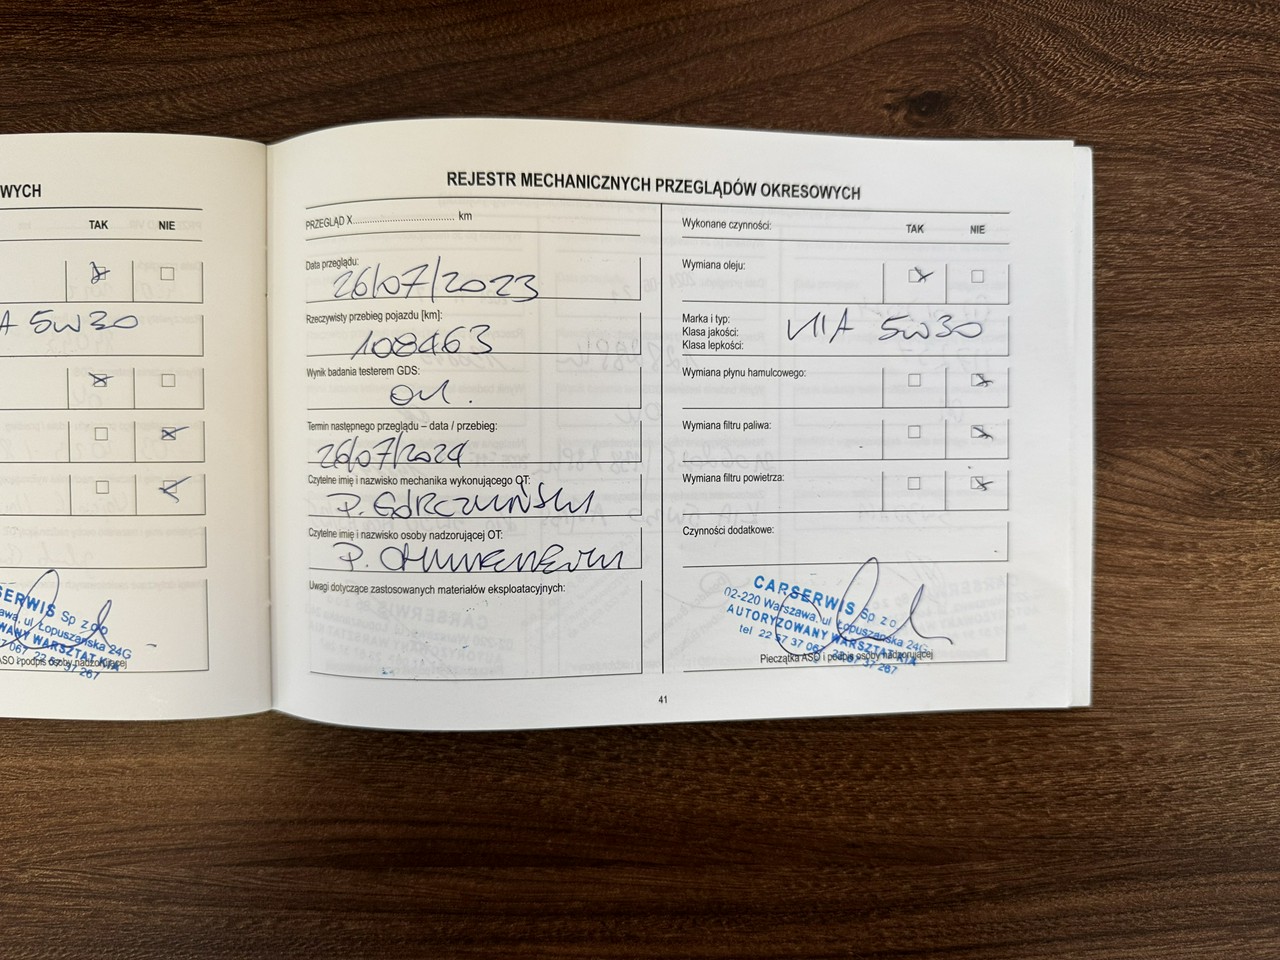 WYCH
TAK NIE
A 5W30
SERWIS Sp z o o
ul Łopuszańska 24G
WANY WARSZTAT KIA
ASO i podpis osoby nadzorującej
REJESTR MECHANICZNYCH PRZEGLĄDÓW OKRESOWYCH
PRZEGLĄD X.................................... km
Data przeglądu:
26/07/2023
Rzeczywisty przebieg pojazdu [km]:
108463
Wynik badania testerem GDS:
Termin następnego przeglądu – data / przebieg:
26/07/2024
Czytelne imię i nazwisko mechanika wykonującego OT:
P. GÓRCZYŃSKI
Czytelne imię i nazwisko osoby nadzorującej OT:
P.
Uwagi dotyczące zastosowanych materiałów eksploatacyjnych:
Wykonane czynności: TAK NIE
Wymiana oleju:
Marka i typ:
Klasa jakości:
Klasa lepkości:
KIA 5W30
Wymiana płynu hamulcowego:
Wymiana filtru paliwa:
Wymiana filtru powietrza:
Czynności dodatkowe:
CARSERWIS Sp z o o
02-220 Warszawa, ul Łopuszańska 24G
AUTORYZOWANY WARSZTAT KIA
tel 22 57 37 067, 22 57 37 267
Pieczątka ASO i podpis osoby nadzorującej
41